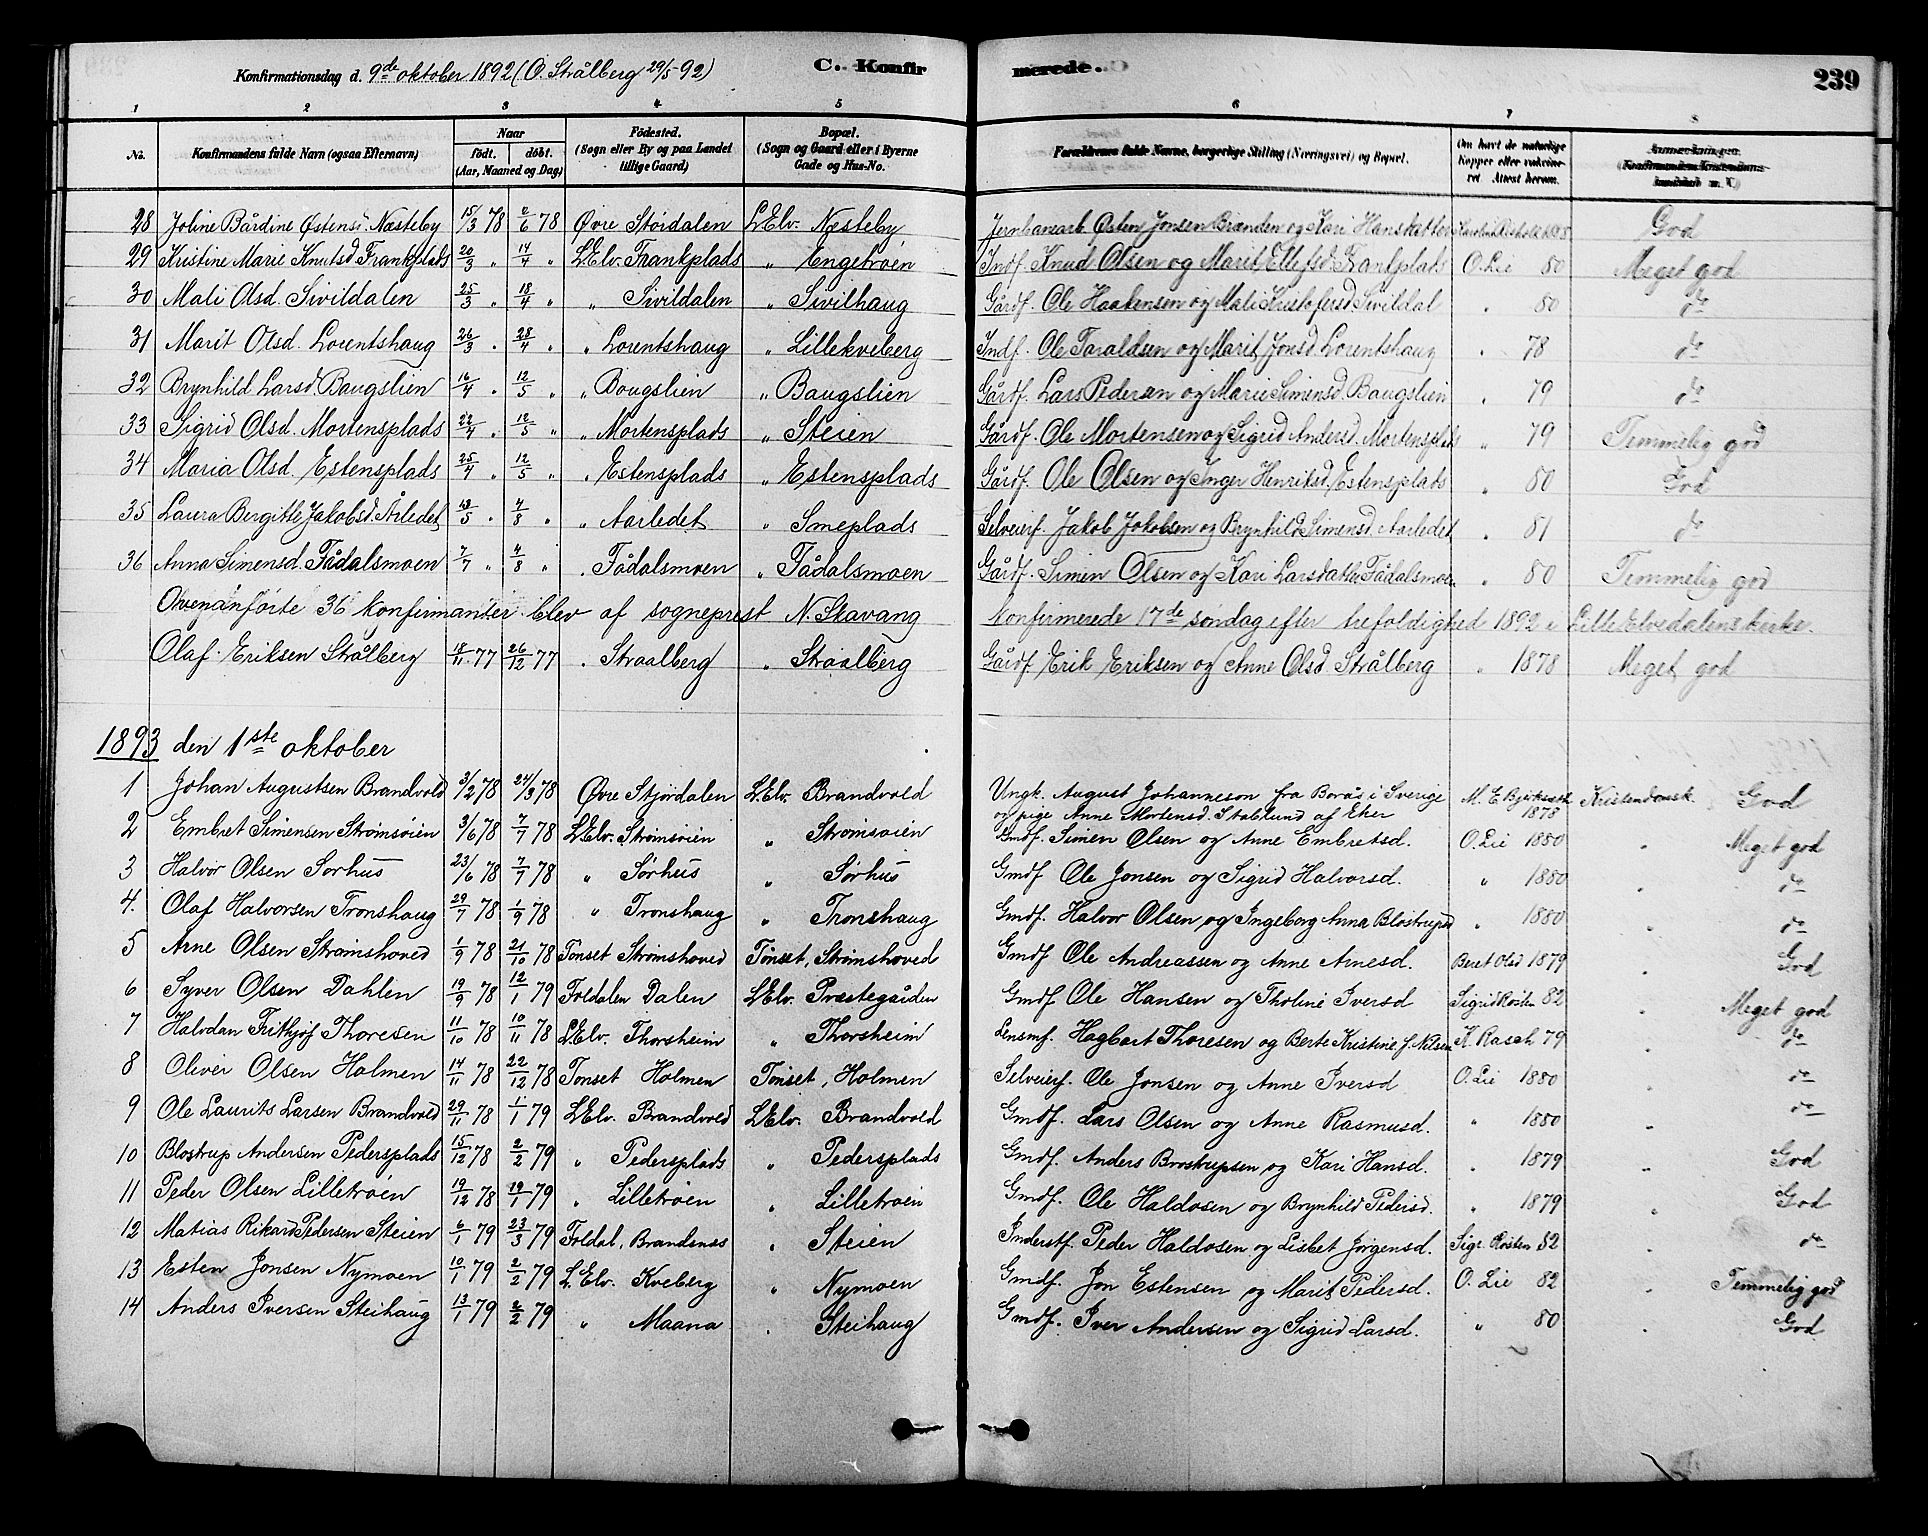 Konfirmationsdag d. 9de oktober 1892 (O. Strålberg 29/5-92) C. Konfirmerede. 239
1 2 3 4 5 6 7 8
No. Konfirmandens fulde Navn (ogsaa Efternavn) Naar født. døbt. (Aar, Maaned og Dag) Fødested. (Sogn eller By og paa Landet tillige Gaard) Bopæl. (Sogn og Gaard eller i Byerne Gade og Hus-No. Forældrenes fulde Navne, borgerlige Stilling (Næringsvei) og Bopæl. Om havt de naturlige Kopper eller vakcineret Attest herom.
28 Joline Bårdine Østensd. Næsteby 15/3 78 2/6 78 Øvre Støidalen L.Elv. Næsteby Jernbanearb. Østen Jonsen Brænden og Kari Hansdatter God
29 Kristine Marie Knutsd Frankplads 20/3 " 14/4 " L.Elv. Frankplads " Engetrøen Indf. Knud Olsen og Marit Ellefsd. Frankplads O. Lie 80 Meget god
30 Mali Olsd. Sivildalen 25/3 " 18/4 " " Sivildalen " Sivilhaug Gårdf. Ole Haakensen og Mali Kristofersd Sivildal " 80 do
31 Marit Olsd. Lorentshaug 26/3 " 28/4 " " Lorentshaug " Lillekveberg Indf. Ole Taraldsen og Marit Jonsd Lorentshaug " 78 do
32 Brynhild Larsd. Baugslien 16/4 " 12/5 " " Bougslien " Baugslien Gårdf. Lars Pedersen og Marie Simensd. Baugslien " 79 do
33 Sigrid Olsd. Mortensplads 22/4 " 12/5 " " Mortensplads " Steien Gårdf. Ole Mortensen og Sigrid Andersd. Mortensplads " 79 Temmelig god
34 Maria Olsd. Estensplads 25/4 " 12/5 " " Estensplads " Estensplads Gårdf. Ole Olsen og Inger Henriksd. Estensplads " 80 God
35 Laura Bergitte Jakobsd. Årledet 13/5 " 4/8 " " Aarledet " Smeplads Selveierf. Jakob Jokobsen og Brynhild Simensd. Aarledet " 81 do
36 Anna Simensd. Fådalsmoen 7/7 " 4/8 " " Fådalsmoen " Fådalsmoen Gårdf. Simen Olsen og Kari Larsdatter Fådalsmoen " 80 Temmelig god
Ovenanførte 36 konfirmanter blev af sogneprest N. Skavang konfirmerede 17de søndag efter trefoldighed 1892 i Lille Elvedalens kirke.
Olaf Eriksen Strålberg 18/11 77 26/12 77 " Straalberg " Straalberg Gårdf. Erik Eriksen og Anne Olsd Strålberg " 1878 Meget god
1893 den 1ste oktober
1 Johan Augustsen Brandvold 3/2 78 24/3 78 Øvre Stjørdalen L.Elv. Brandvold Ungk. August Johanneson fra Borås i Sverige
og pige Anne Mortensd. Stablund af Eker 1878 Kristendomsk. God
2 Embret Simensen Strømsøien 3/6 78 7/7 78 L.Elv. Strømsøien " Strømsøien Gmdf. Simen Olsen og Anne Embretsd. O. Lie 1880 " Meget god
3 Halvor Olsen Sørhus 23/6 78 7/7 78 " Sørhus " Sørhus Gmdf Ole Jonsen og Sigrid Halvorsd. " 1880 " do
4. Olaf Halvorsen Tronshaug 29/7 78 1/9 78 " Tronshaug " Tronshaug Gmdf. Halvor Olsen og Ingeborg Anna Blostrupsd " 1880 " do
5 Arne Olsen Strømshoved 1/9 78 21/10 78 Tønset Strømshoved Tønset, Strømshoved Gmdf Ole Andreassen og Anne Arnesd. Beret Olsd 1879 " God
6 Syver Olsen Dahlen 19/9 78 12/1 79 Foldalen Dalen L.Elv. Præstegården Gmdf Ole Hansen og Tholine Iversd Sigrid Røsten 82 " Meget god
7 Halvdan Frithjof Thoresen 11/10 78 10/11 78 L.Elv. Thorsheim " Thorsheim Lensmf. Hagbart Thoresen og Berte Kristine f. Nilsen K. Rasch 79 " do
8 Oliver Olsen Holmen 14/11 78 22/12 78 Tønset Holmen Tønset, Holmen Selveierf. Ole Jonsen og Anne Iversd O. Lie 1880 " do
9 Ole Laurits Larsen Brandvold 29/11 78 1/1 79 L.Elv. Brandvold L.Elv. Brandvold Gmdf. Lars Olsen og Anne Rasmusd. " 1880 do
10 Blostrup Andersen Pedersplads 15/12 78 2/2 79 " Pedersplads " Pedersplads Gmdf. Anders Brostrupsen og Kari Hansd. " 1879 " God
11 Peder Olsen Lilletrøen 19/12 78 19/1 79 " Lilletrøen " Lilletrøen Gmdf. Ole Haldosen og Brynhild Pedersd. " 1879 " God
12 Matias Rikard Pedersen Steien 6/1 79 23/3 79 Foldal, Brandsnes " Steien Inderstf. Peder Haldosen og Lisbet Jørgensd. Sigr. Røsten 82 " do
13 Esten Jonsen Nymoen 10/1 79 2/2 79 L.Elv. Kveberg " Nymoen Gmdf. Jon Estensen og Marit Pedersd. O. Lie 82 " Temmelig god
14 Anders Iversen Steihaug 13/1 79 2/2 79 " Maana " Steihaug Gmdf. Iver Andersen og Sigrid Larsd. " 80 " God